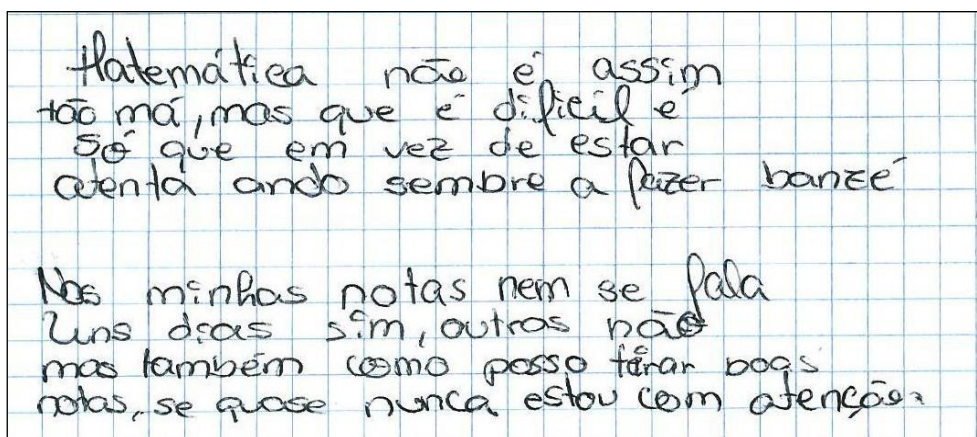 Matemática não é assim
tão má, mas que é dificil é
Só que em vez de estar
atenta ando sembre a fazer banzé
Nas minhas notas nem se fala
Uns dias sim, outros não
mas também como posso tirar boas
notas, se quase nunca estou com atenção?